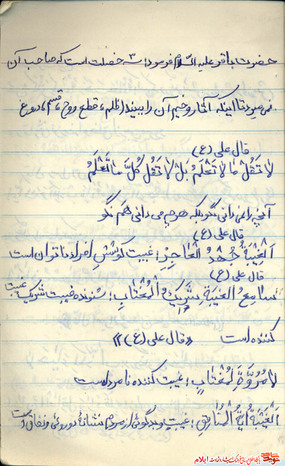 حضرت باقر علیه السلام فرمود: سه خصلت است که صاحب آن
نمیرد تا اینکه آثار وخیم آن را ببیند (ظلم، قطع روح، قسم دروغ
قال علی (ع)
لا تَقُلْ ما لا تَعْلَمُ بَلْ لا تَقُلْ كُلَّ ما تَعْلَمُ
آنچه را نمی دانی نگو بلکه هر چه می دانی هم نگو
قال علی (ع)
اَلْغیبَةُ جُهْدُ الْعاجِزِ: غیبت کوشش افراد ناتوان است
قال علی (ع)
سامِعُ الْغیبَةِ شَریکُ الْمُغْتابِ: شنونده غیبت شریک غیبت
کننده است «قال علی (ع)»
لا مُرُوَّةَ لِمُغْتابٍ: غیبت کننده نامرد است
اَلْغیبَةُ آیَةُ الْمُنافِقِ: غیبت و بدگوئی از مردم نشانه دوروئی و نفاق است